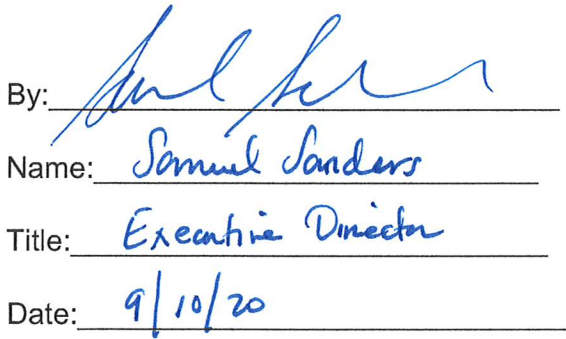 By:
Name: Samuel Sanders
Title: Executive Director
Date: 9/10/20